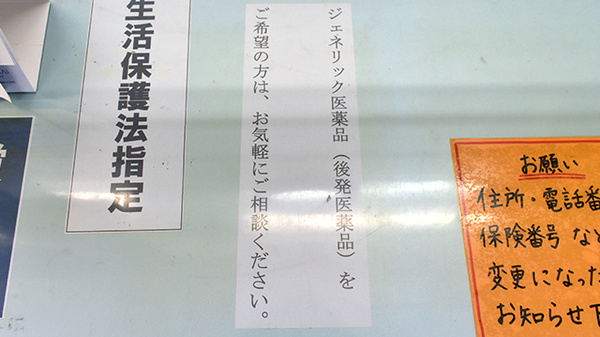 生活保護法指定
ジェネリック医薬品(後発医薬品)を
ご希望の方は、お気軽にご相談ください。
お願い
住所・電話番
保険番号など
変更になった
お知らせ下